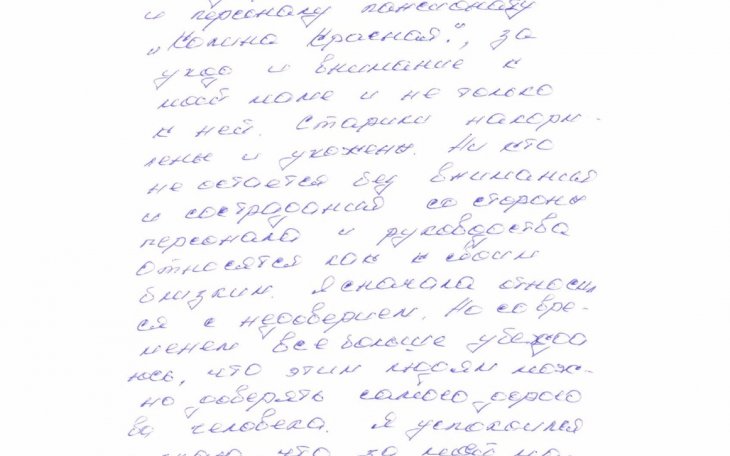 и персоналу пансионату
„Колина Красная.", за
уход и внимание к
моей маме и не только
к ней. Старики накорм-
лены и ухожены. Ни кто
не остается без внимания
и сострадания со стороны
персонала и руководства
относятся как к своим
близким. Я сначала относил
ся с недоверием. Но со вре-
менем все больше убежда
юсь, что этим людям мож-
но доверять самого дорого
го человека. Я успокоился
что за моей